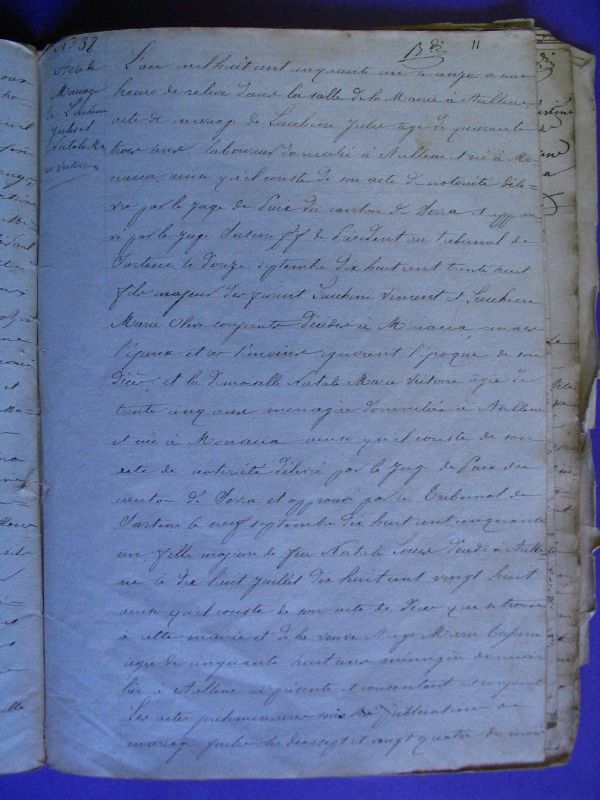 N° 38
acte de
Mariage
de Lucchini
Jules et
Natale M.
Victoire
Bdi 11
L'an mil huit cent cinquante un le onze a une
heure de relevé dans la salle de la Mairie à Aullene
acte de mariage de Lucchini Jules agé de quarante
trois ans laboureur domicilié à Aullene et né à Mo
nacia, ainsi qu'il conste de son acte de notorieté déli=
vré par le Juge de Paix du canton de Serra et approu
vé par le Juge ff de President au tribunal de
Sartene le douze septembre dix huit cent trente huit
fils majeur des furent Lucchini Vincent et Lucchini
Marie conjoints décédés à Monacia mais
l'époux et les témoins ignorent l'époque de son
décès, et la dmoiselle Natale Marie Victoire agée de
trente cinq ans, menagère domiciliée à Aullene
et née à Monacia ainsi qu'il conste de son
acte de notorieté délivré par le Juge de Paix du
canton de Serra et approuvé par le Tribunal de
Sartene le neuf septembre dix huit cent cinquante
un, fille majeure de feu Natale décédé à Aulle
ne le dix huit Juillet dix huit cent vingt huit
ainsi qu'il conste de son acte de décès qui se trouve
à cette mairie et de la veuve Marie
agée de cinquante huit ans ménagère domici
liée à Aullene ci présente et consentant
Les actes préliminaires sont les publications de
mariage faites les dix sept et vingt quatre du mois